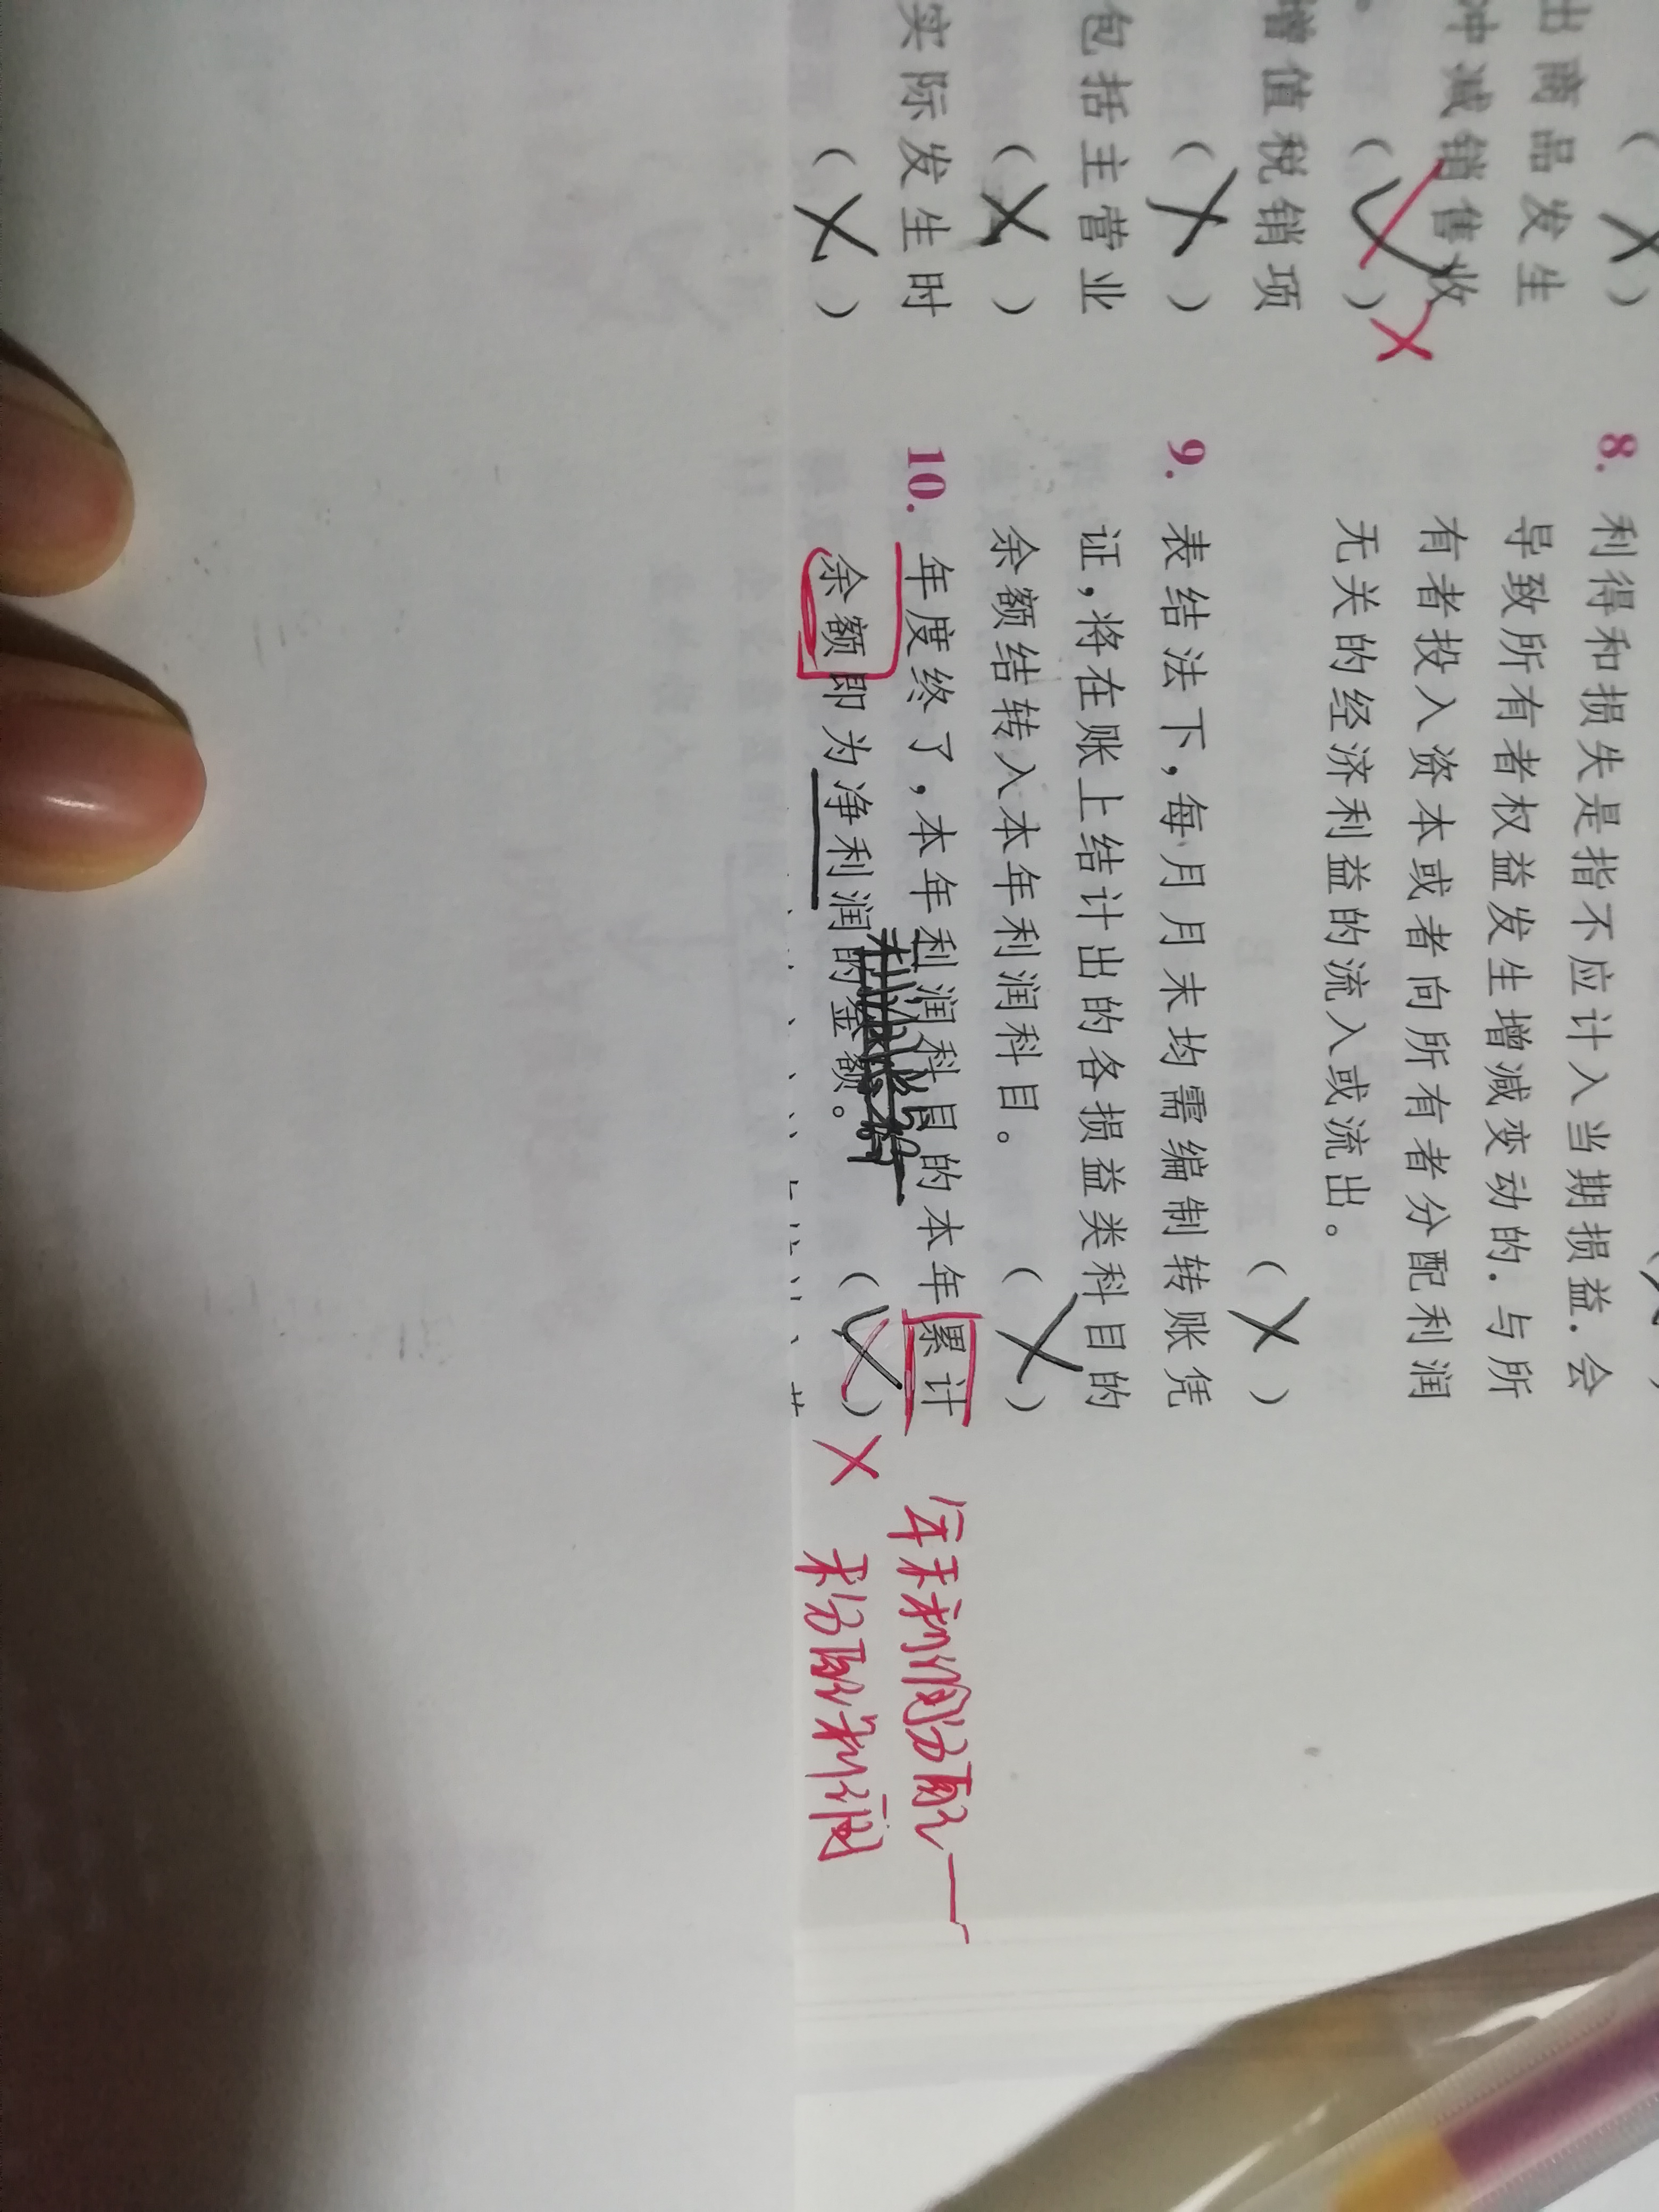 （×）
出商品发生
冲减销售收
。（√）×
增值税销项
（×）
包括主营业
（×）
实际发生时
（×）
8. 利得和损失是指不应计入当期损益，会
导致所有者权益发生增减变动的，与所
有者投入资本或者向所有者分配利润
无关的经济利益的流入或流出。
（×）
9. 表结法下，每月月末均需编制转账凭
证，将在账上结计出的各损益类科目的
余额结转入本年利润科目。（×）
10. 年度终了，本年利润科目的本年累计
余额即为净利润的金额。（√）×
年末利润分配—
未分配利润